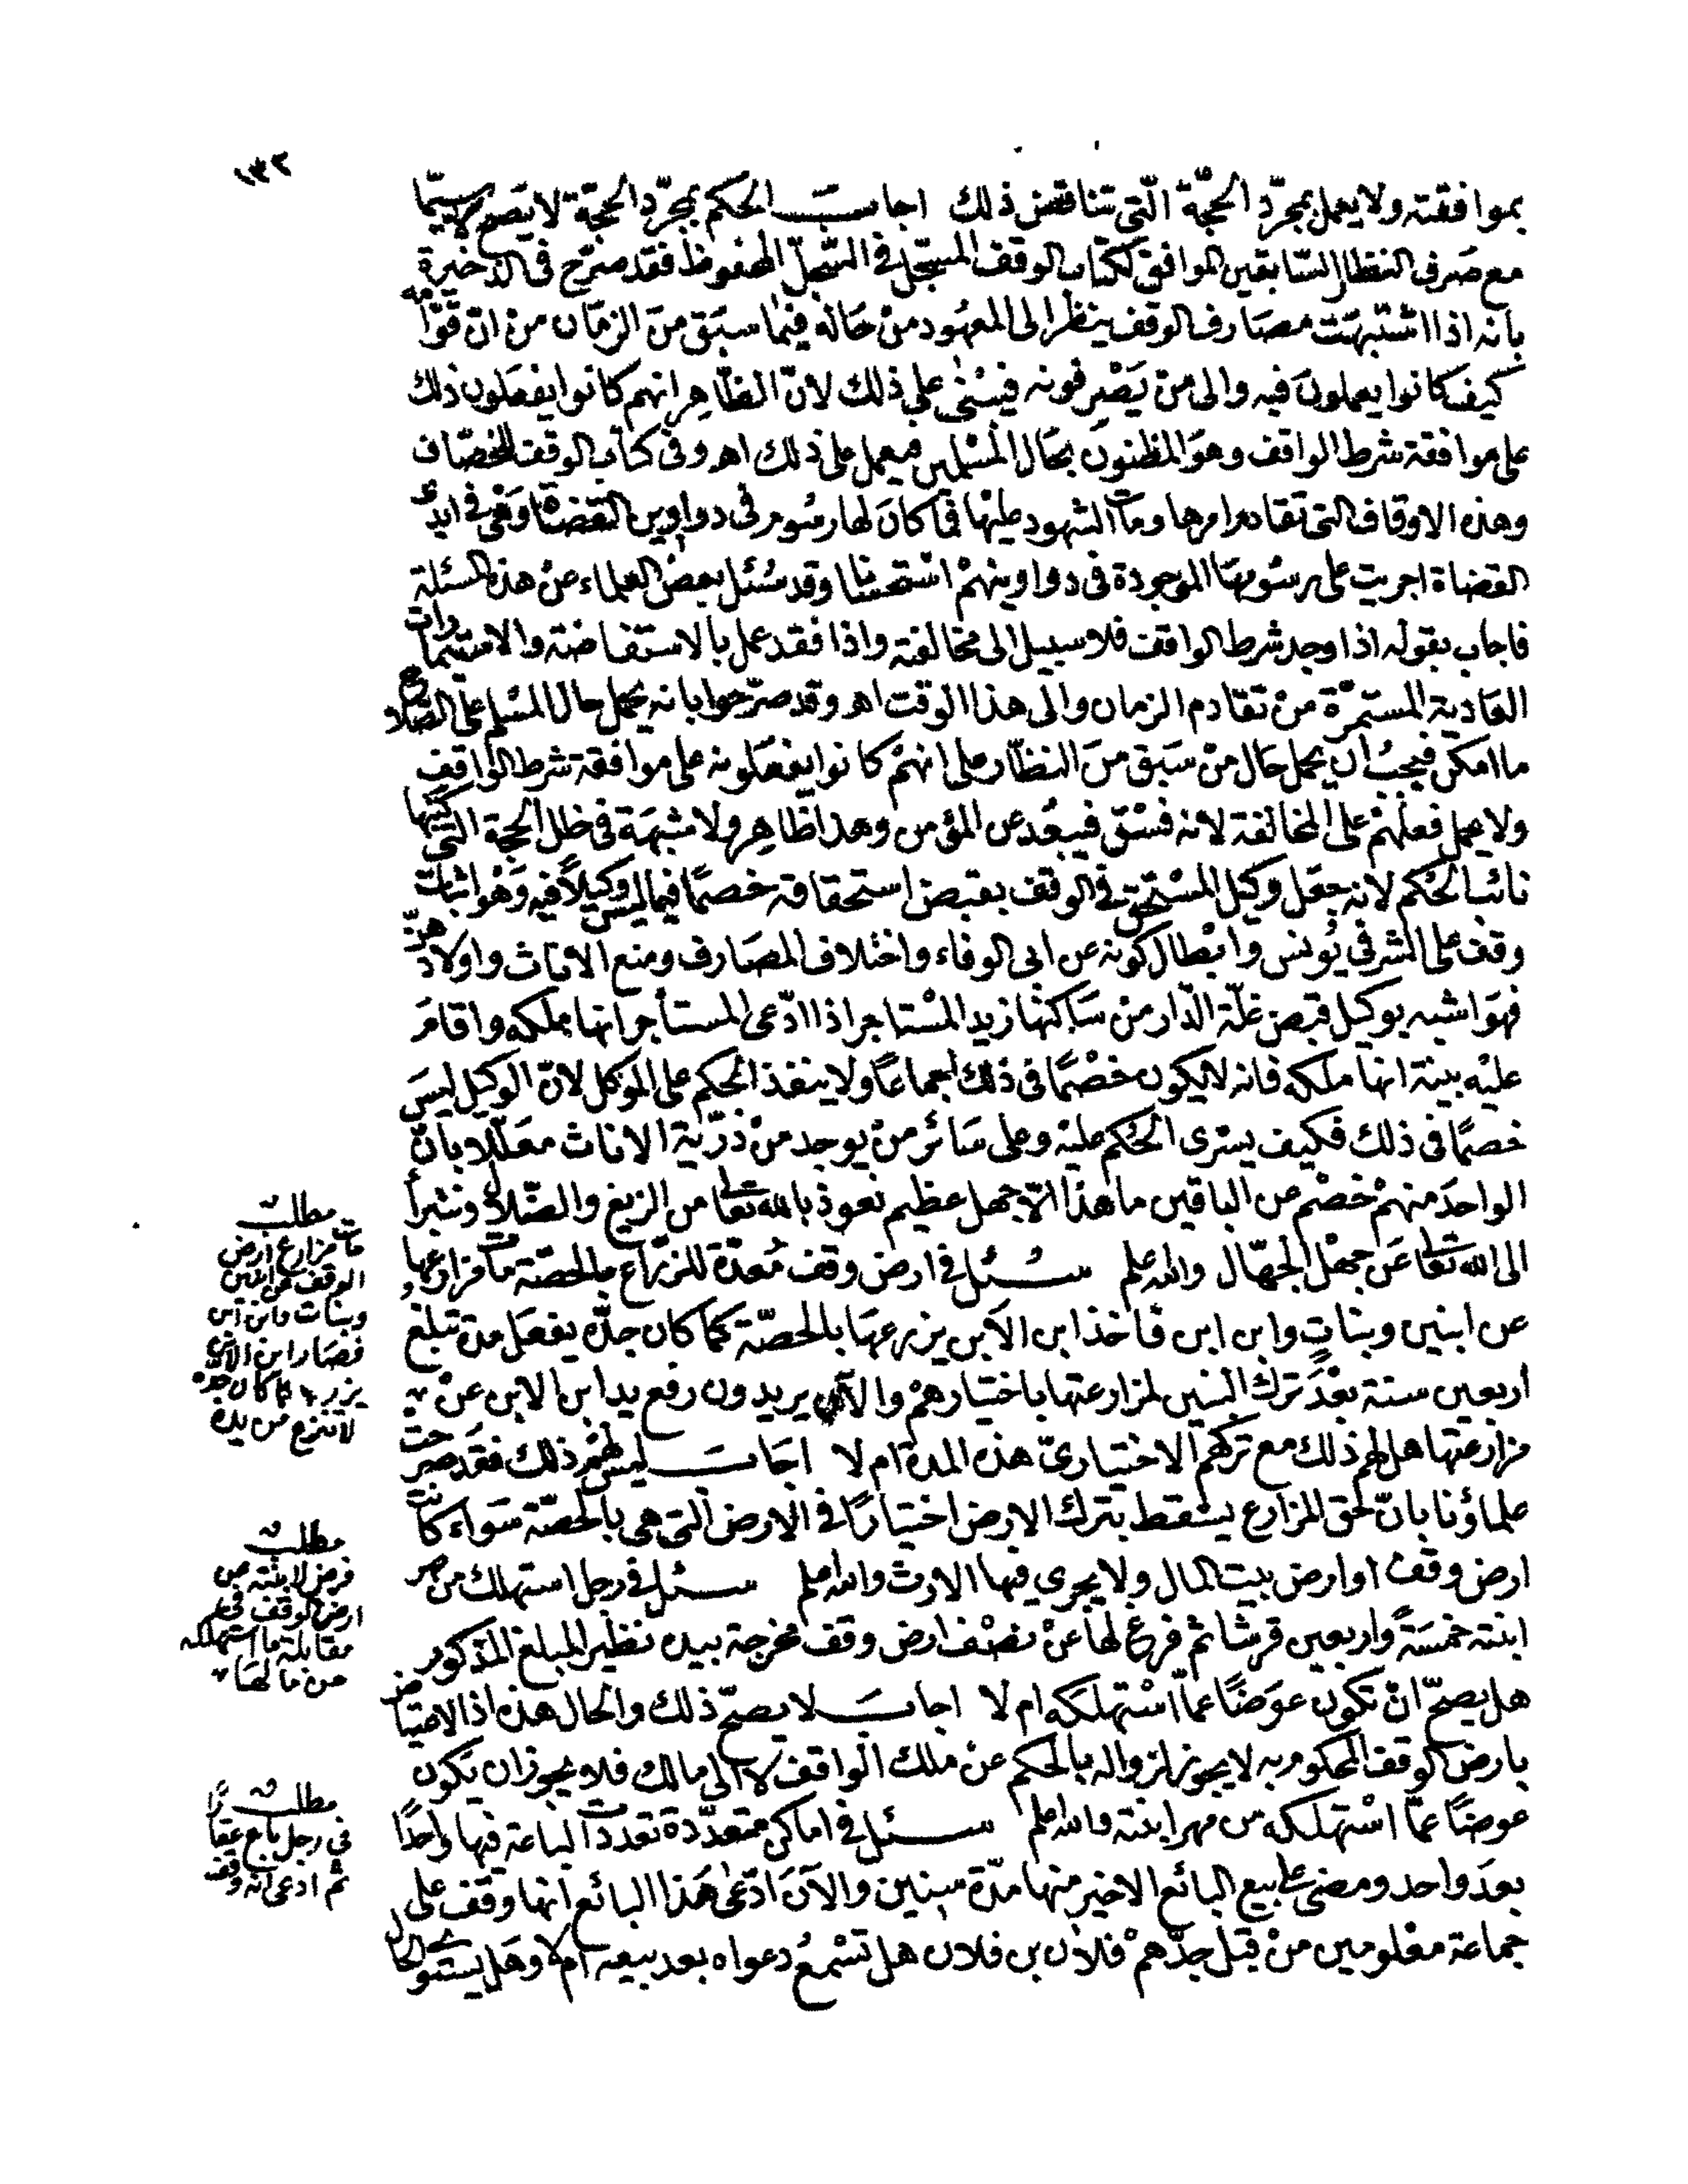 ١٣٢
بموافقته ولا يعمل بمجرّد الحجّة الّتى تناقض ذلك اجاب الحكم بمجرّد الحجّة لا يصح لاسيّما
مع صرف النظار السّابقين الموافق لكتاب الوقف المسجّل فى السّجلّ المحفوظ فقد صرّح فى الذخيرة
بانه اذا اشتبهت مصارف الوقف ينظر الى المعهود من حاله فيما سبق من الزمان من انّ قوّامه
كيف كانوا يعملون فيه والى من يصرفونه فيبنى على ذلك لانّ الظّاهر انهم كانوا يفعلون ذلك
على موافقة شرط الواقف وهو المظنون بحال المسلمين فيعمل على ذلك اهـ وفى كتاب الوقف للخصّاف
وهذه الاوقاف التى تقادم امرها ومات الشهود عليها فما كان لها رسوم فى دواوين القضاة وهى فى ايدى
القضاة اجريت على رسومها الموجودة فى دواوينهم استحسانا وقد سئل بعض العلماء عن هذه المسئلة
فاجاب بقوله اذا وجد شرط الواقف فلا سبيل الى مخالفته واذا فقد عمل بالاستفاضة والاستيمارات
العادية المستمرّة من تقادم الزمان والى هذا الوقت اهـ وقد صرّحوا بانه يحمل حال المسلم على الصّلاح
ما امكن فيجب ان يحمل حال من سبق من النظّار على انهم كانوا يفعلونه على موافقة شرط الواقف
ولا يحمل فعلهم على المخالفة لانه فسق فيبعد عن المؤمن وهذا ظاهر ولا شبهة فى خلل الحجة التى كتبها
نائب الحكم لانه جعل وكيل المستحق فى الوقف بقبض استحقاقه خصمًا فيما ليس وكيلًا فيه وهو اثبات
وقف على الشرفى يونس وابطال كونه عن ابى الوفاء واختلاف المصارف ومنع الاناث واولادهنّ
فهو اشبه بوكيل قبض غلّة الدّار من ساكنها زيد المستاجر اذا ادّعى المستأجر انها ملكه واقام
عليه بينة انها ملكه فانه لا يكون خصمًا فى ذلك اجماعًا ولا ينفذ الحكم على الموكل لانّ الوكيل ليس
خصمًا فى ذلك فكيف يسرى الحكم عليه وعلى سائر من يوجد من ذرّية الاناث معلّلا بانّ
الواحد منهم خصم عن الباقين ما هذا الّا جهل عظيم نعوذ بالله تعالى من الزيغ والضّلال ونتبرأ
الى الله تعالى عن جهل الجهّال والله اعلم سئل فى ارض وقف معدّة للزراع بالحصّة مات مزارعها
عن ابنين وبنات وابن ابن فاخذ ابن الابن يزرعها بالحصّة كما كان جدّه يفعل مدة تبلغ
اربعين سنة بعد ترك البنين لمزارعتها باختيارهم والآن يريدون رفع يد ابن الابن عن
مزارعتها هل لهم ذلك مع تركهم الاختيارىّ هذه المدة ام لا اجاب ليس لهم ذلك فقد صرّحت
علماؤنا بانّ حق المزارع يسقط بترك الارض اختيارًا فى الارض التى هى بالحصّة سواء كانت
ارض وقف او ارض بيت المال ولا يجرى فيها الارث والله اعلم سئل فى رجل استهلك من مهر
ابنته خمسة واربعين قرشا ثم فرغ لها عن نصف ارض وقف مخرجة بيده نظير المبلغ المذكور
هل يصحّ ان تكون عوضًا عمّا استهلكه ام لا اجاب لا يصحّ ذلك والحال هذه اذ الاعتياض
بارض الوقف المحكوم به لا يجوز لزواله بالحكم عن ملك الواقف لا الى مالك فلا يجوز ان تكون
عوضًا عمّا استهلكه من مهر ابنته والله اعلم سئل فى اماكن متعدّدة تعددت الباعة فيها واحدًا
بعد واحد ومضى على بيع البائع الاخير منها مدّة سنين والآن ادّعى هذا البائع انها وقف على
جماعة معلومين من قبل جدّهم فلان بن فلان هل تسمع دعواه بعد بيعه ام لا وهل يستوى الحال
مطلب
مات مزارع ارض
الوقف عن ابنين
وبنات وابن ابن
فصار ابن الابن
يزرعها كما كان جده
لا تنزع من يده
مطلب
فرض لابنته عن
ارض الوقف فى
مقابلة ما استهلكه
من مالها
مطلب
فى رجل باع عقارًا
ثم ادعى انه وقف